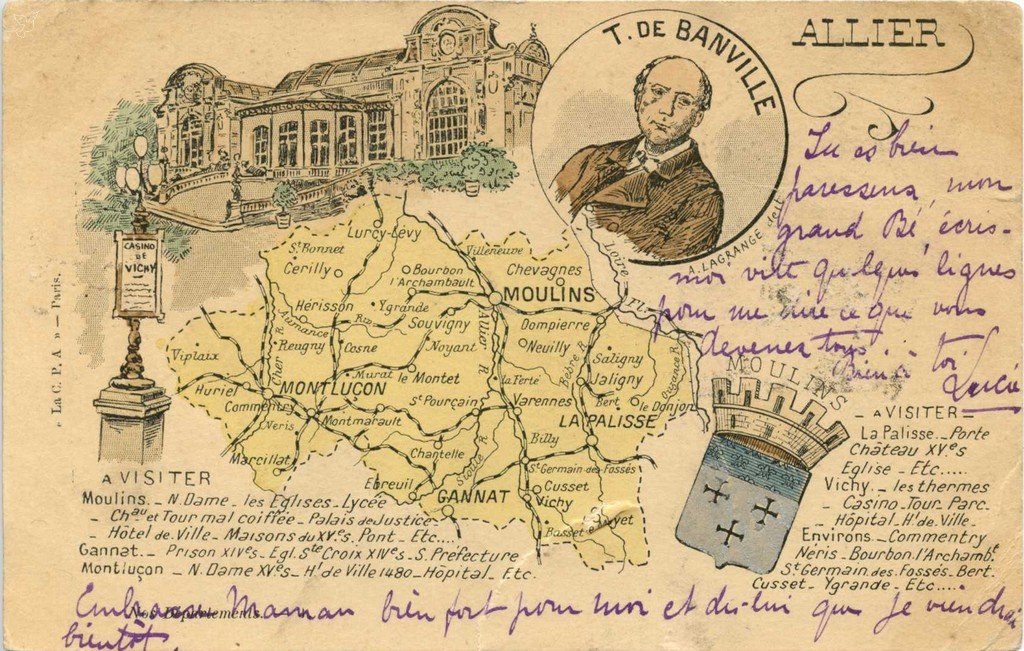 ALLIER
T. DE BANVILLE
A. LAGRANGE del.t
CASINO
DE
VICHY
« La C. P. A » — Paris.
Tu es bien
paresseux, mon
grand Bé, écris-
moi vite quelques lignes
pour me dire ce que vous
devenez tous.
Bien à toi
Lucie
Lurcy-Lévy
St Bonnet
Cerilly
Villeneuve
Bourbon
l'Archambault
Chevagnes
Loire
Fl.
MOULINS
Hérisson
Aumance
Riv.
Ygrande
Souvigny
Allier
Dompierre
Reugny
Cosne
Noyant
Neuilly
Saligny
Viplaix
Cher R.
Murat
le Montet
la Ferté
Bèbre R.
Jaligny
Huriel
MONTLUÇON
Bert
le Donjon
Commentry
St Pourçain
Varennes
LA PALISSE
Neris
Montmarault
Billy
Marcillat
Chantelle
Sioule R.
St Germain-des-Fossés
Ebreuil
GANNAT
Cusset
Vichy
MOULINS
A VISITER
Moulins. - N. Dame - les Eglises - Lycée
- Chau et Tour mal coiffée - Palais de Justice -
- Hôtel de Ville - Maisons du XVes. Pont - Etc....
Gannat - Prison XIVes - Egl. Ste Croix XIVes - S. Préfecture
Montluçon - N. Dame XVes - Hl de Ville 1480 - Hôpital. Etc.
- A VISITER
La Palisse - Porte
Château XVes
Eglise - Etc....
Vichy - les thermes
Casino - Tour. Parc.
- Hôpital. Hl de Ville -
Environs - Commentry
Néris - Bourbon l'Archambt
St Germain des Fossés - Bert.
Cusset - Ygrande - Etc.....
Nos Départements.
Embrasse Maman bien fort pour moi et dis-lui que je viendrai
bientôt.